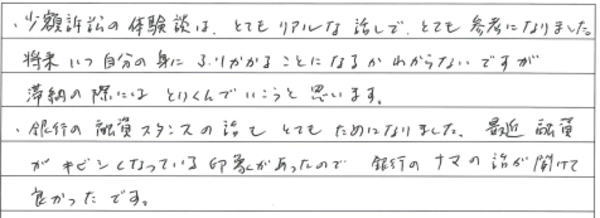 ・少額訴訟の体験談は、とてもリアルな話しで、とても参考になりました。
将来いつ自分の身にふりかかることになるかわからないですが
滞納の際にはとりくんでいこうと思います。
・銀行の融資スタンスの話もとてもためになりました。最近融資
がキビシくなっている印象があったので 銀行のナマの話が聞けて
良かったです。